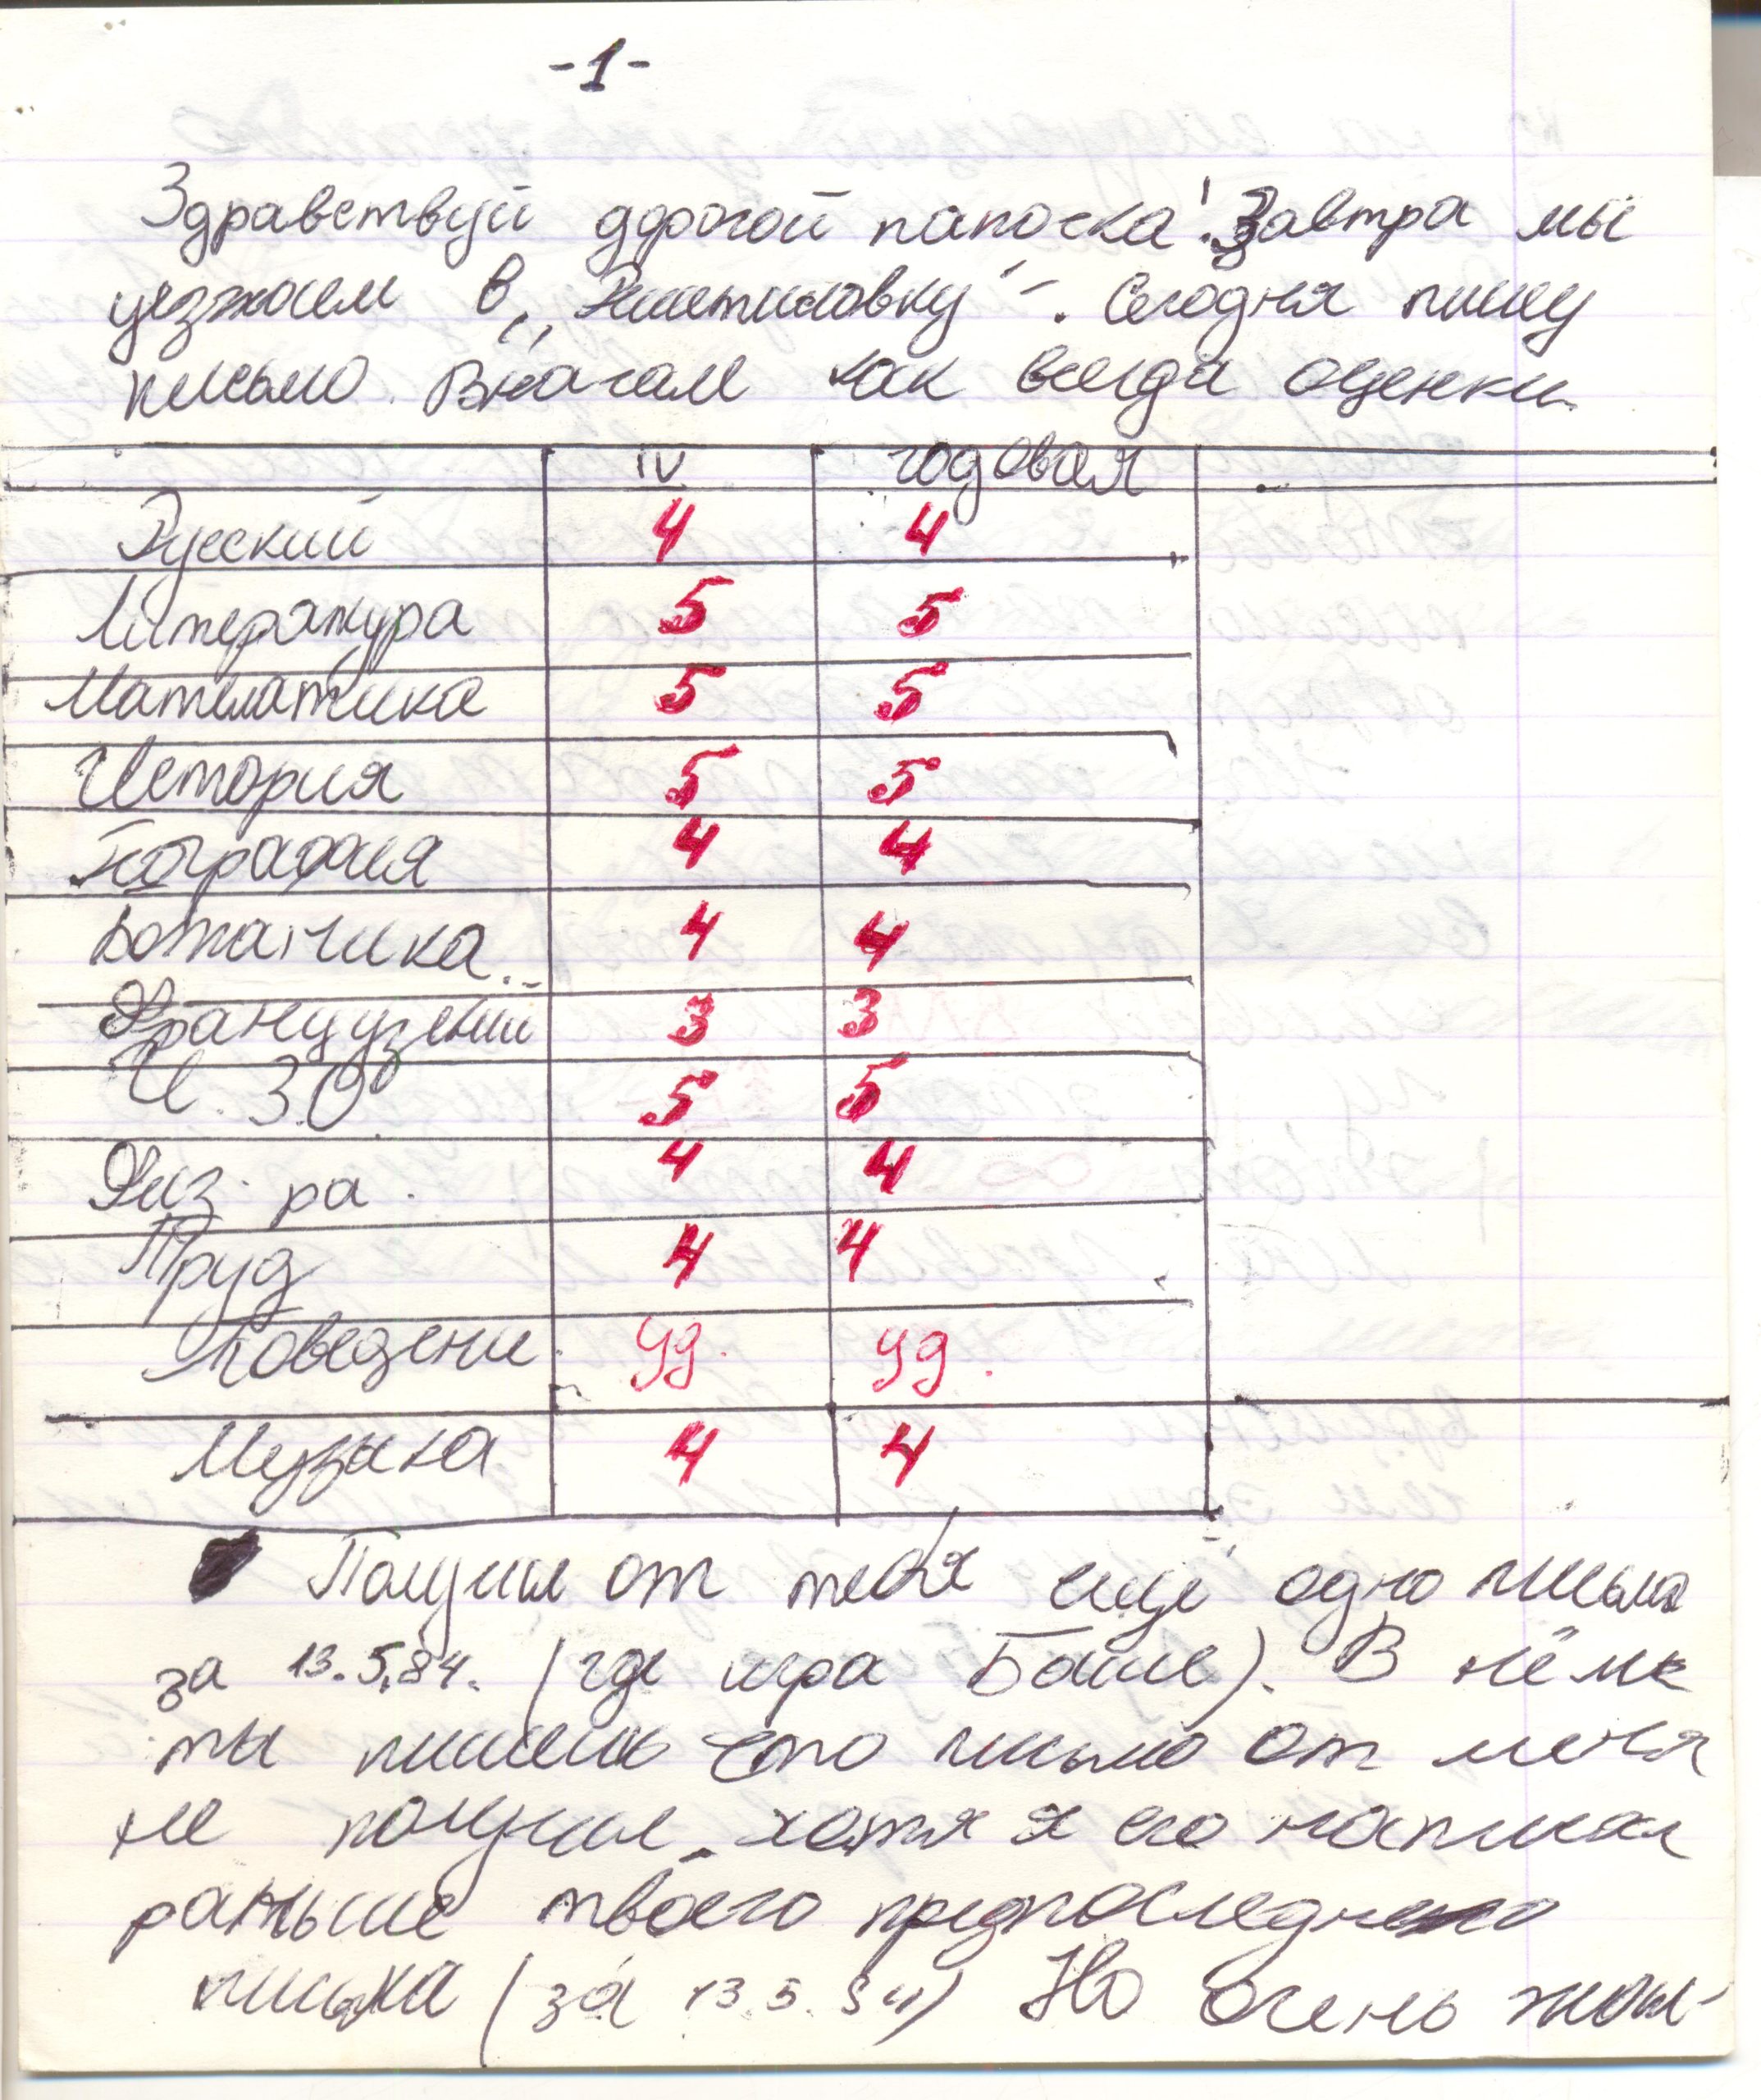 -1-
Здравствуй дорогой папочка! Завтра мы
уезжаем в „Решетиловку". Сегодня пишу
письмо. Вначале как всегда оценки.
IV годовая
Русский 4 4
Литература 5 5
Математика 5 5
История 5 5
География 4 4
Ботаника 4 4
Французский 3 3
И.ЗО 5 5
Физ-ра. 4 4
Труд 4 4
Поведение уд. уд.
Музыка 4 4
Получил от тебя ещё одно письмо
за 13.5.84. (где игра Баше). В нём
ты пишешь что письмо от меня
не получил, хотя я его написал
раньше твоего предпоследнего
письма (за 13.5.84) Но очень жал-